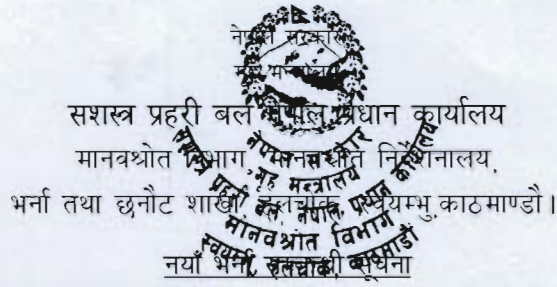 नेपाल सरकार
गृह मन्त्रालय
सशस्त्र प्रहरी बल नेपाल, प्रधान कार्यालय
मानवश्रोत विभाग, मानवश्रोत निर्देशनालय,
भर्ना तथा छनौट शाखा, हलचोक, स्वयम्भु, काठमाण्डौ।
नयाँ भर्ना सूचना
नेपाल सरकार
गृह मन्त्रालय
सशस्त्र प्रहरी बल, नेपाल, प्रधान कार्यालय
मानवश्रोत विभाग
स्वयम्भु, हलचोक, काठमाडौं